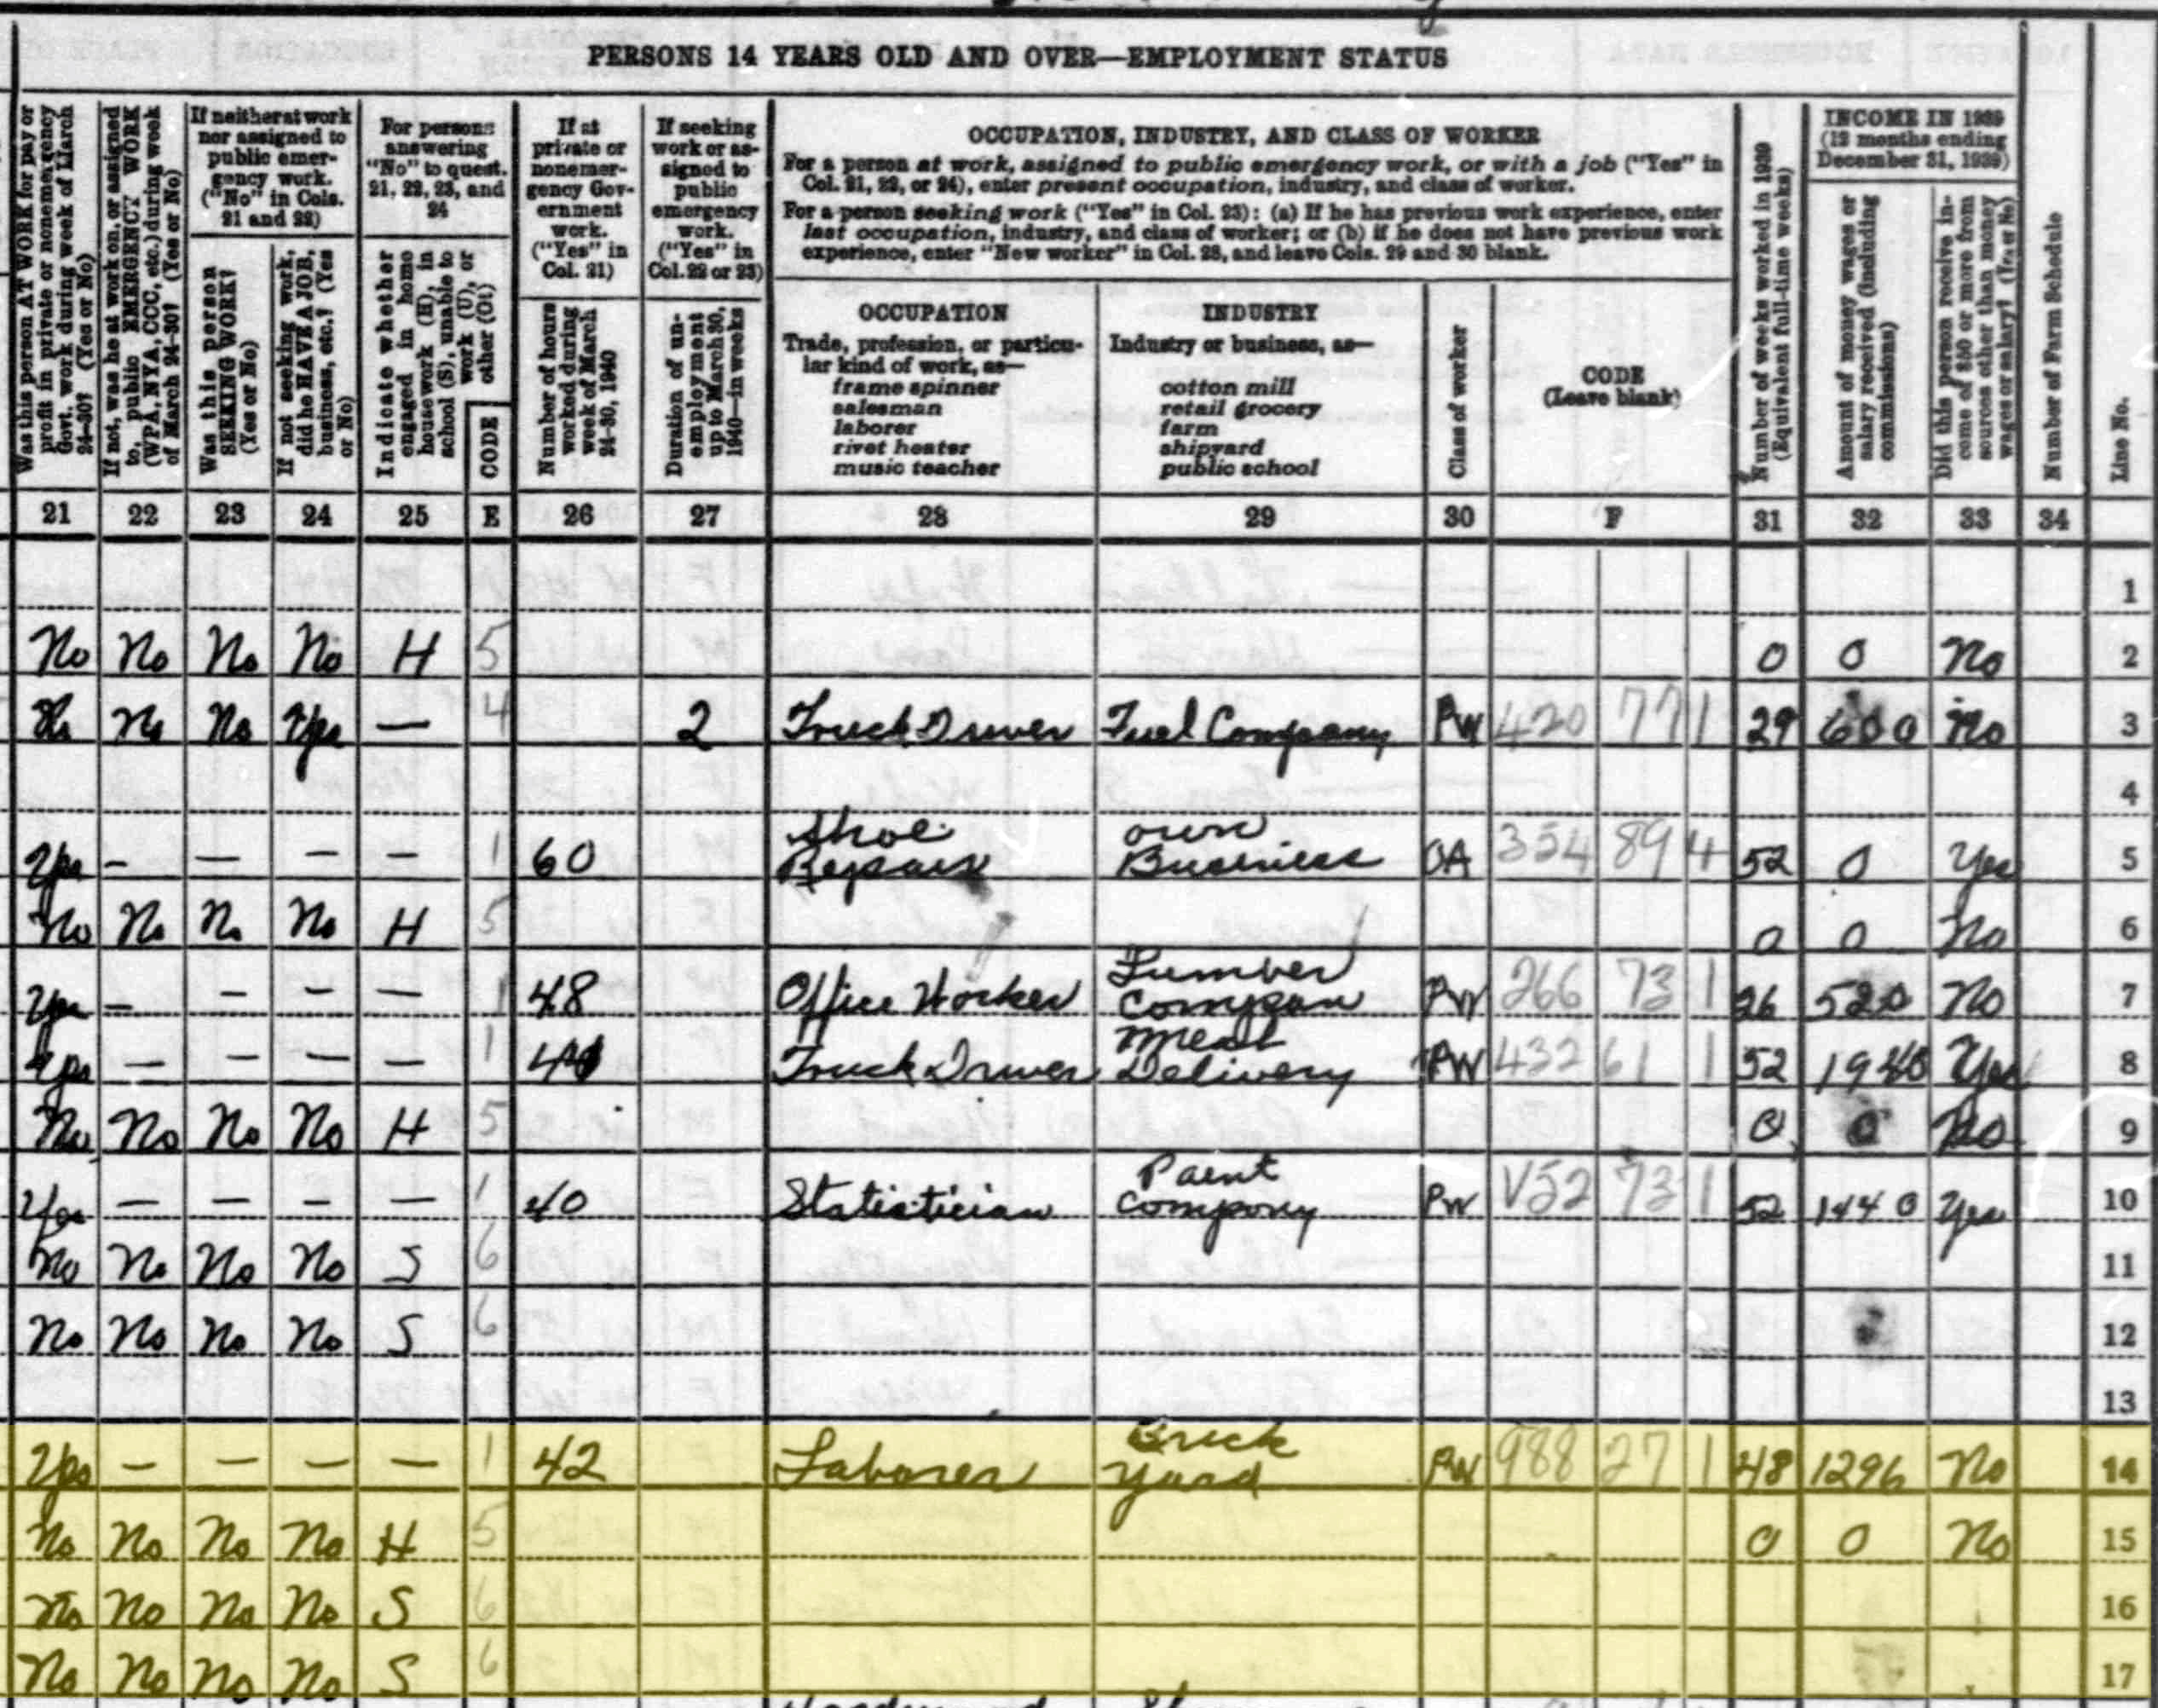 PERSONS 14 YEARS OLD AND OVER—EMPLOYMENT STATUS
Was this person AT WORK for pay or profit in private or nonemergency Govt. work during week of March 24-30? (Yes or No)
If not, was he at work on, or assigned to, public EMERGENCY WORK (WPA, NYA, CCC, etc.) during week of March 24-30? (Yes or No)
If neither at work nor assigned to public emergency work. ("No" in Cols. 21 and 22)
Was this person SEEKING WORK? (Yes or No)
If not seeking work, did he HAVE A JOB, business, etc.? (Yes or No)
For persons answering "No" to quest. 21, 22, 23, and 24
Indicate whether engaged in home housework (H), in school (S), unable to work (U), or other (Ot)
CODE
If at private or nonemergency Government work. ("Yes" in Col. 21)
Number of hours worked during week of March 24-30, 1940
If seeking work or assigned to public emergency work. ("Yes" in Col. 22 or 23)
Duration of unemployment up to March 30, 1940—in weeks
OCCUPATION, INDUSTRY, AND CLASS OF WORKER
For a person at work, assigned to public emergency work, or with a job ("Yes" in
Col. 21, 22, or 24), enter present occupation, industry, and class of worker.
For a person seeking work ("Yes" in Col. 23): (a) If he has previous work experience, enter
last occupation, industry, and class of worker; or (b) if he does not have previous work
experience, enter "New worker" in Col. 28, and leave Cols. 29 and 30 blank.
OCCUPATION
Trade, profession, or particu-
lar kind of work, as—
frame spinner
salesman
laborer
rivet heater
music teacher
INDUSTRY
Industry or business, as—
cotton mill
retail grocery
farm
shipyard
public school
Class of worker
CODE
(Leave blank)
Number of weeks worked in 1939 (Equivalent full-time weeks)
INCOME IN 1939
(12 months ending
December 31, 1939)
Amount of money wages or salary received (including commissions)
Did this person receive income of $50 or more from sources other than money wages or salary? (Yes or No)
Number of Farm Schedule
Line No.
21 22 23 24 25 E 26 27 28 29 30 F 31 32 33 34
1
No No No No H 5 0 0 No 2
No No No Yes — 4 2 Truck Driver Fuel Company PW 420 77 1 29 600 No 3
4
Yes – — – – 1 60 Shoe Repair own Business OA 354 89 4 52 0 Yes 5
No No No No H 5 0 0 No 6
Yes – – – — 1 48 Office Worker Lumber Compan PW 266 73 1 26 520 No 7
Yes — – — – 1 Truck Driver Meat Delivery PW 432 61 1 52 Yes 8
No No No No H 5 0 0 No 9
Yes — – – — 1 40 Statistician Paint Company PW V52 73 1 52 1440 Yes 10
No No No No S 6 11
No No No No S 6 12
13
Yes – – – – 1 42 Laborer Brick Yard PW 988 27 1 48 1296 No 14
No No No No H 5 0 0 No 15
No No No No S 6 16
No No No No S 6 17